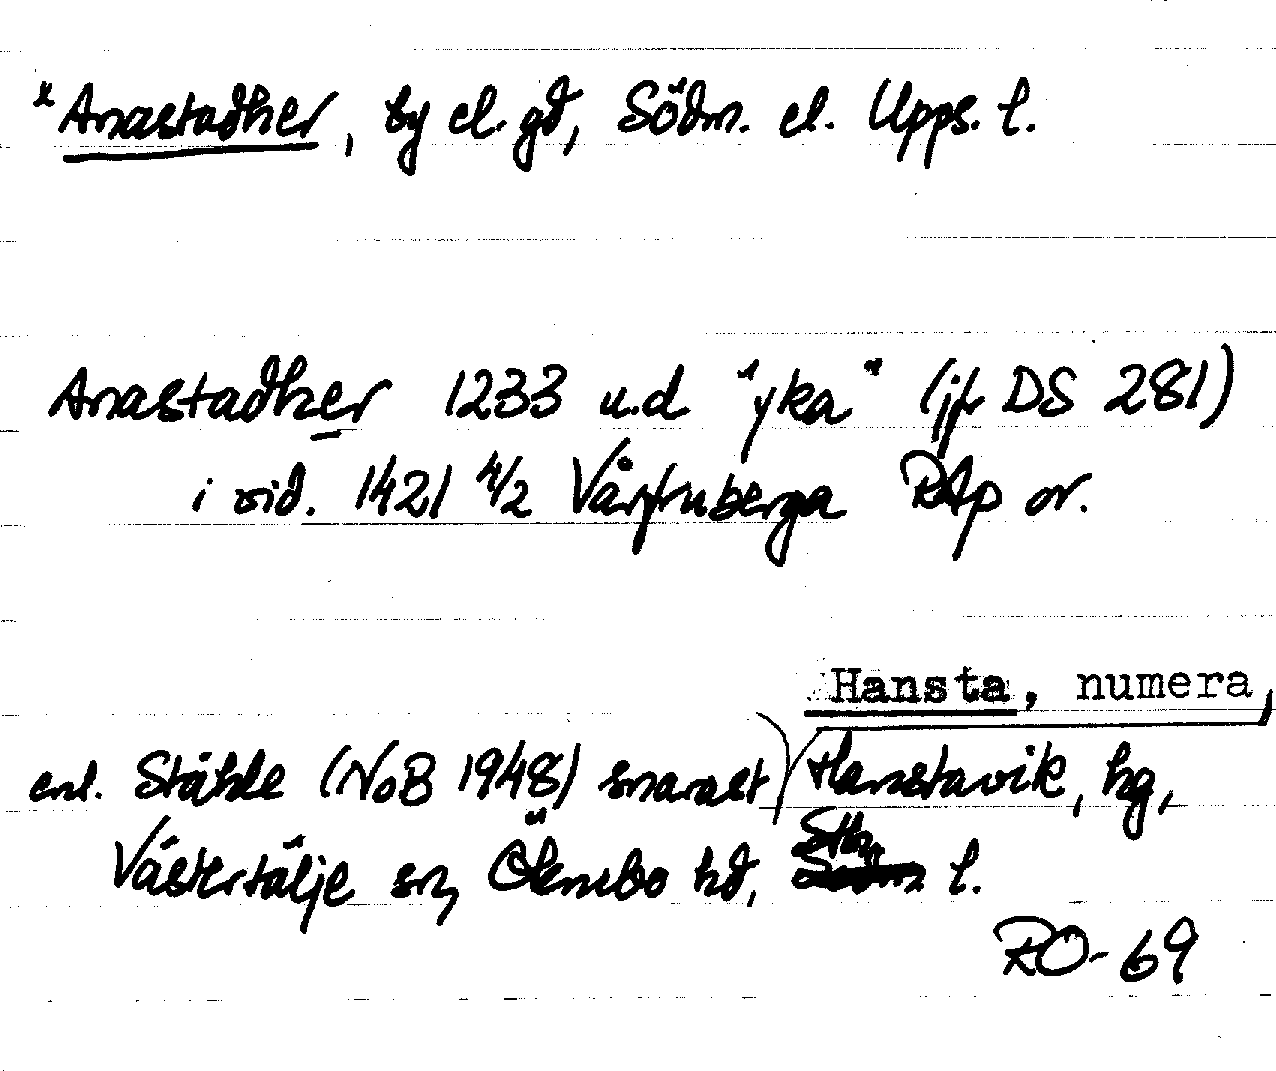 *Anastadher, by el. gd, Södm. el. Upps. l.
Anastadher 1233 u.d "yka" (jfr DS 281)
i vid. 1421 4/2 Vårfruberga RAp or.
Hansta, numera
enl. Ståhle (NoB 1948) snarast Hanstavik, hg,
Västertälje sn, Öknebo hd, Sthm l.
RO-69